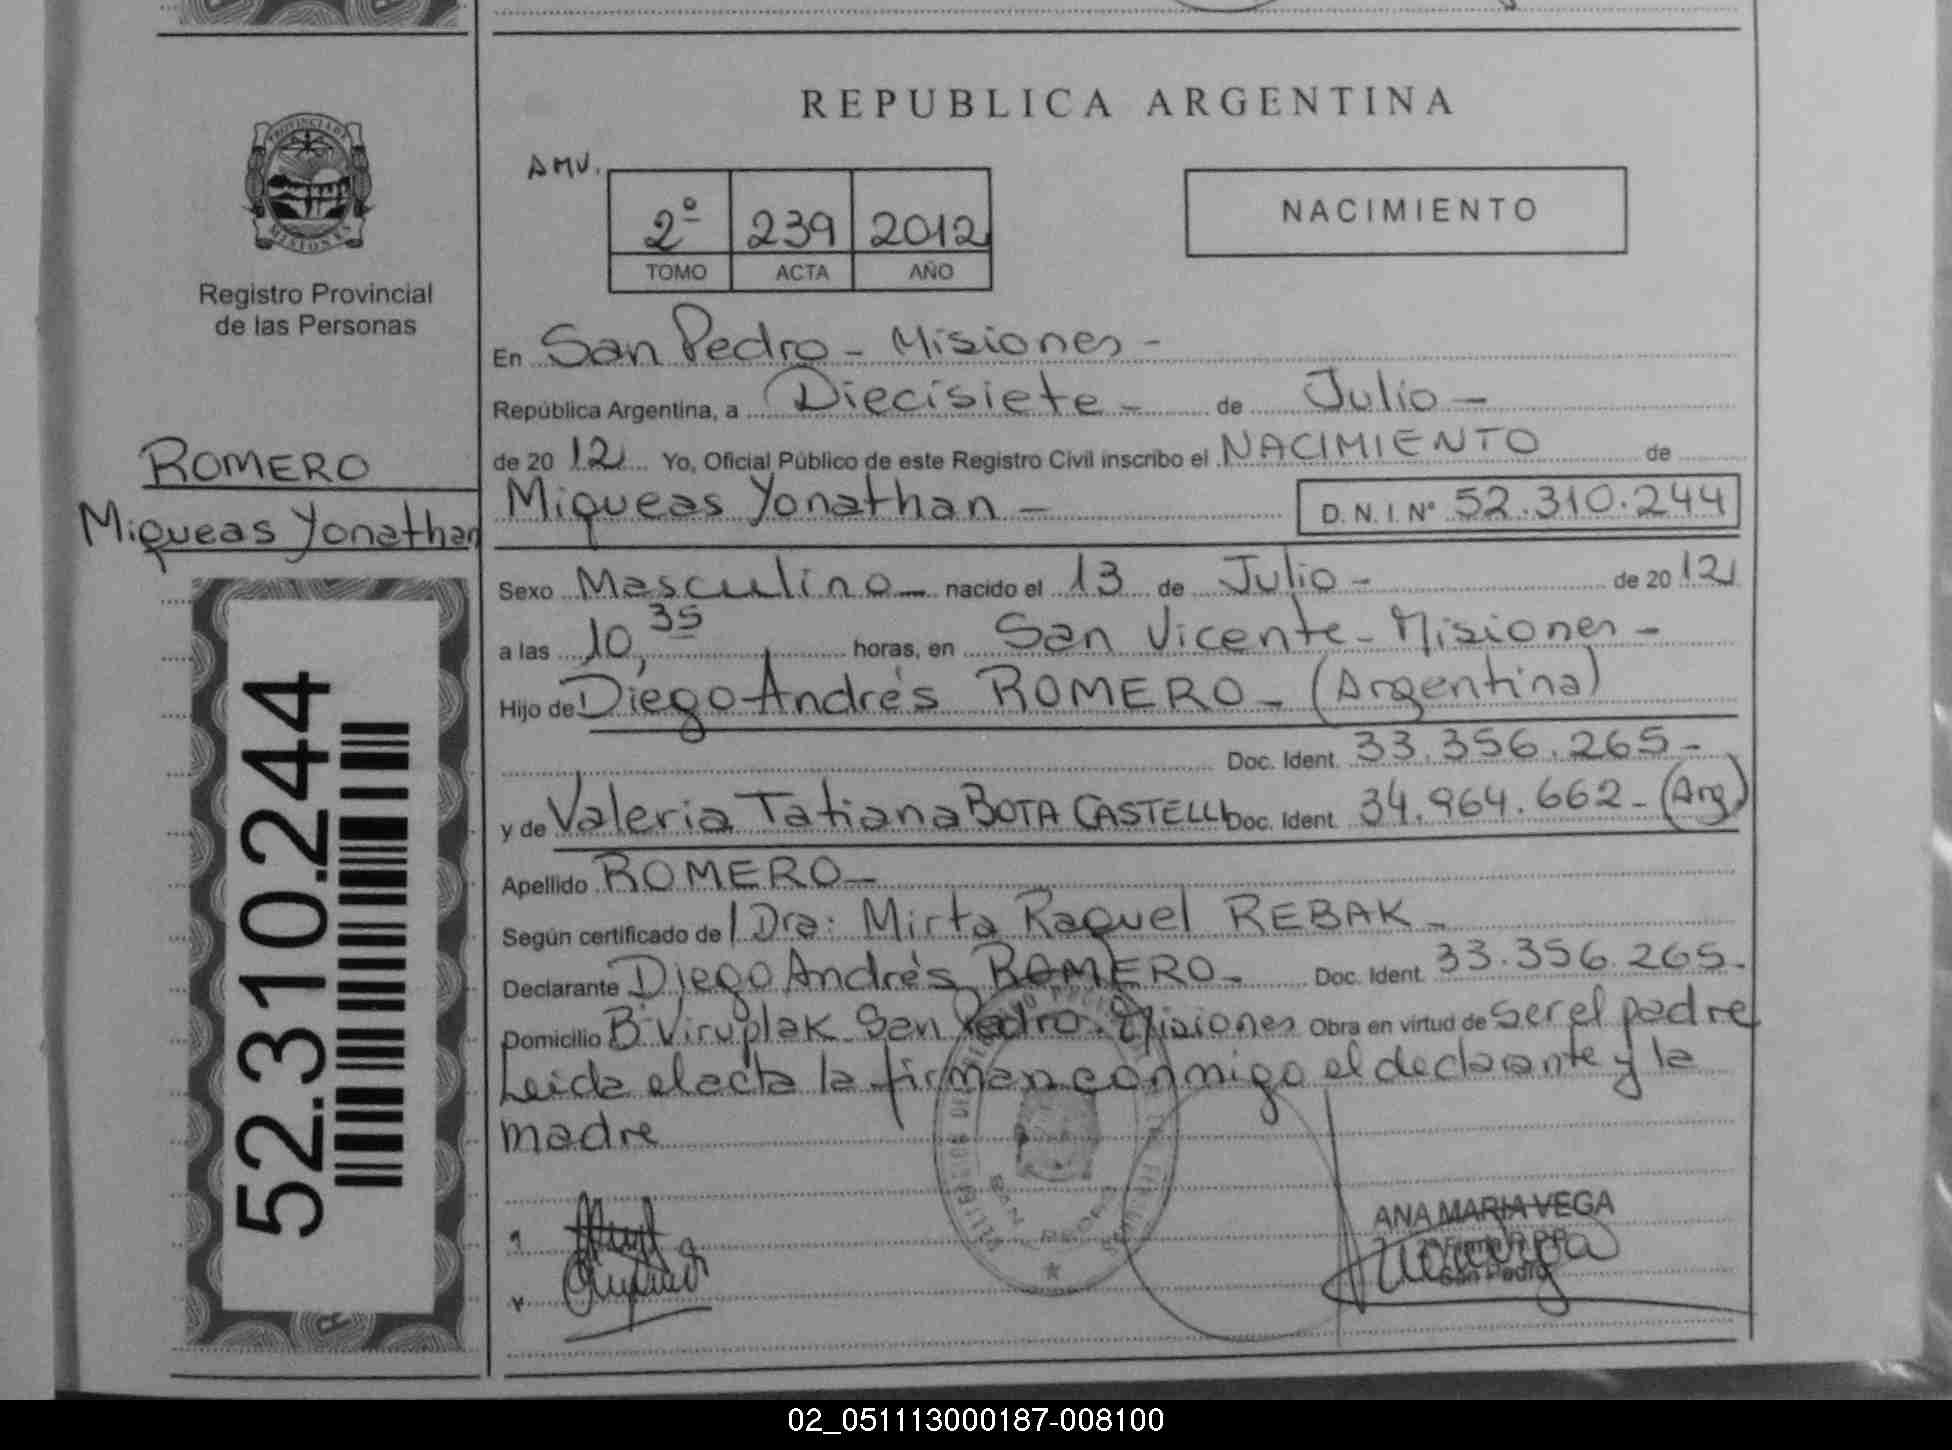 REPUBLICA ARGENTINA
PROVINCIA DE
MISIONES
Registro Provincial
de las Personas
AMV.
2º 239 2012
TOMO ACTA AÑO
NACIMIENTO
En San Pedro - Misiones -
República Argentina, a Diecisiete - de Julio -
de 20 12 Yo, Oficial Público de este Registro Civil inscribo el NACIMIENTO de
ROMERO
Miqueas Yonathan
Miqueas Yonathan - D.N.I. Nº 52.310.244
Sexo Masculino - nacido el 13 de Julio - de 20 12
a las 10,35 horas, en San Vicente - Misiones -
Hijo de Diego Andrés ROMERO - (Argentina)
Doc. Ident. 33.356.265 -
y de Valeria Tatiana BOTA CASTELLI Doc. Ident. 34.964.662 - (Arg)
Apellido ROMERO -
Según certificado de / Dra: Mirta Raquel REBAK -
Declarante Diego Andrés ROMERO - Doc. Ident. 33.356.265 -
Domicilio Bº Viruplak San Pedro. Misiones Obra en virtud de ser el padre
Leida el acta la firman conmigo el declarante y la
madre
52.310.244
SAN PEDRO
ANA MARIA VEGA
San Pedro
02_051113000187-008100